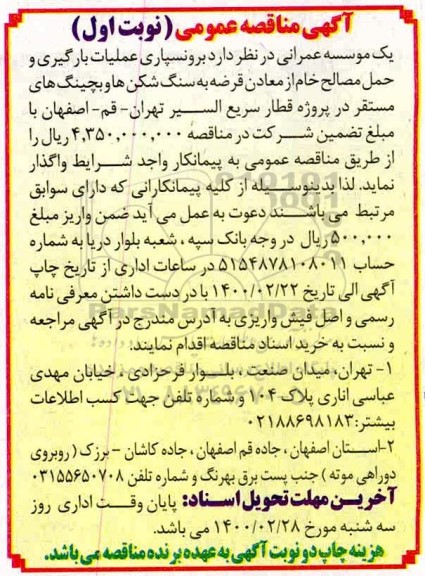 آگهی مناقصه عمومی (نوبت اول)
یک موسسه عمرانی در نظر دارد برونسپاری عملیات بارگیری و
حمل مصالح خام از معادن قرضه به سنگ شکن ها و بچینگ های
مستقر در پروژه قطار سریع السیر تهران- قم- اصفهان با
مبلغ تضمین شرکت در مناقصه ۴,۳۵۰,۰۰۰,۰۰۰ ریال را
از طریق مناقصه عمومی به پیمانکار واجد شرایط واگذار
نماید. لذا بدینوسیله از کلیه پیمانکارانی که دارای سوابق
مرتبط می باشند دعوت به عمل می آید ضمن واریز مبلغ
۵۰۰,۰۰۰ ریال در وجه بانک سپه ، شعبه بلوار دریا به شماره
حساب ۵۱۵۴۸۷۸۱۰۸۰۱۱ در ساعات اداری از تاریخ چاپ
آگهی الی تاریخ ۱۴۰۰/۰۲/۲۲ با در دست داشتن معرفی نامه
رسمی و اصل فیش واریزی به آدرس مندرج در آگهی مراجعه
و نسبت به خرید اسناد مناقصه اقدام نمایند:
۱- تهران، میدان صنعت ، بلوار فرحزادی ، خیابان مهدی
عباسی اناری پلاک ۱۰۴ و شماره تلفن جهت کسب اطلاعات
بیشتر: ۰۲۱۸۸۶۹۸۱۸۳
۲-استان اصفهان ، جاده قم اصفهان ، جاده کاشان – برزک ( روبروی
دوراهی موته ) جنب پست برق بهرنگ و شماره تلفن ۰۳۱۵۵۶۵۰۷۰۸
آخرین مهلت تحویل اسناد: پایان وقت اداری روز
سه شنبه مورخ ۱۴۰۰/۰۲/۲۸ می باشد.
هزینه چاپ دو نوبت آگهی به عهده برنده مناقصه می باشد.
ParsNamadData